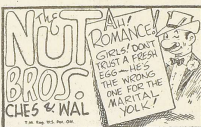 The
NUT
BROS.
CHES & WAL
T.M. Reg. U.S. Pat. Off.
AH!
ROMANCE!
GIRLS! DON'T
TRUST A FRESH
EGG — HE'S
THE WRONG
ONE FOR THE
MARITAL
YOLK!